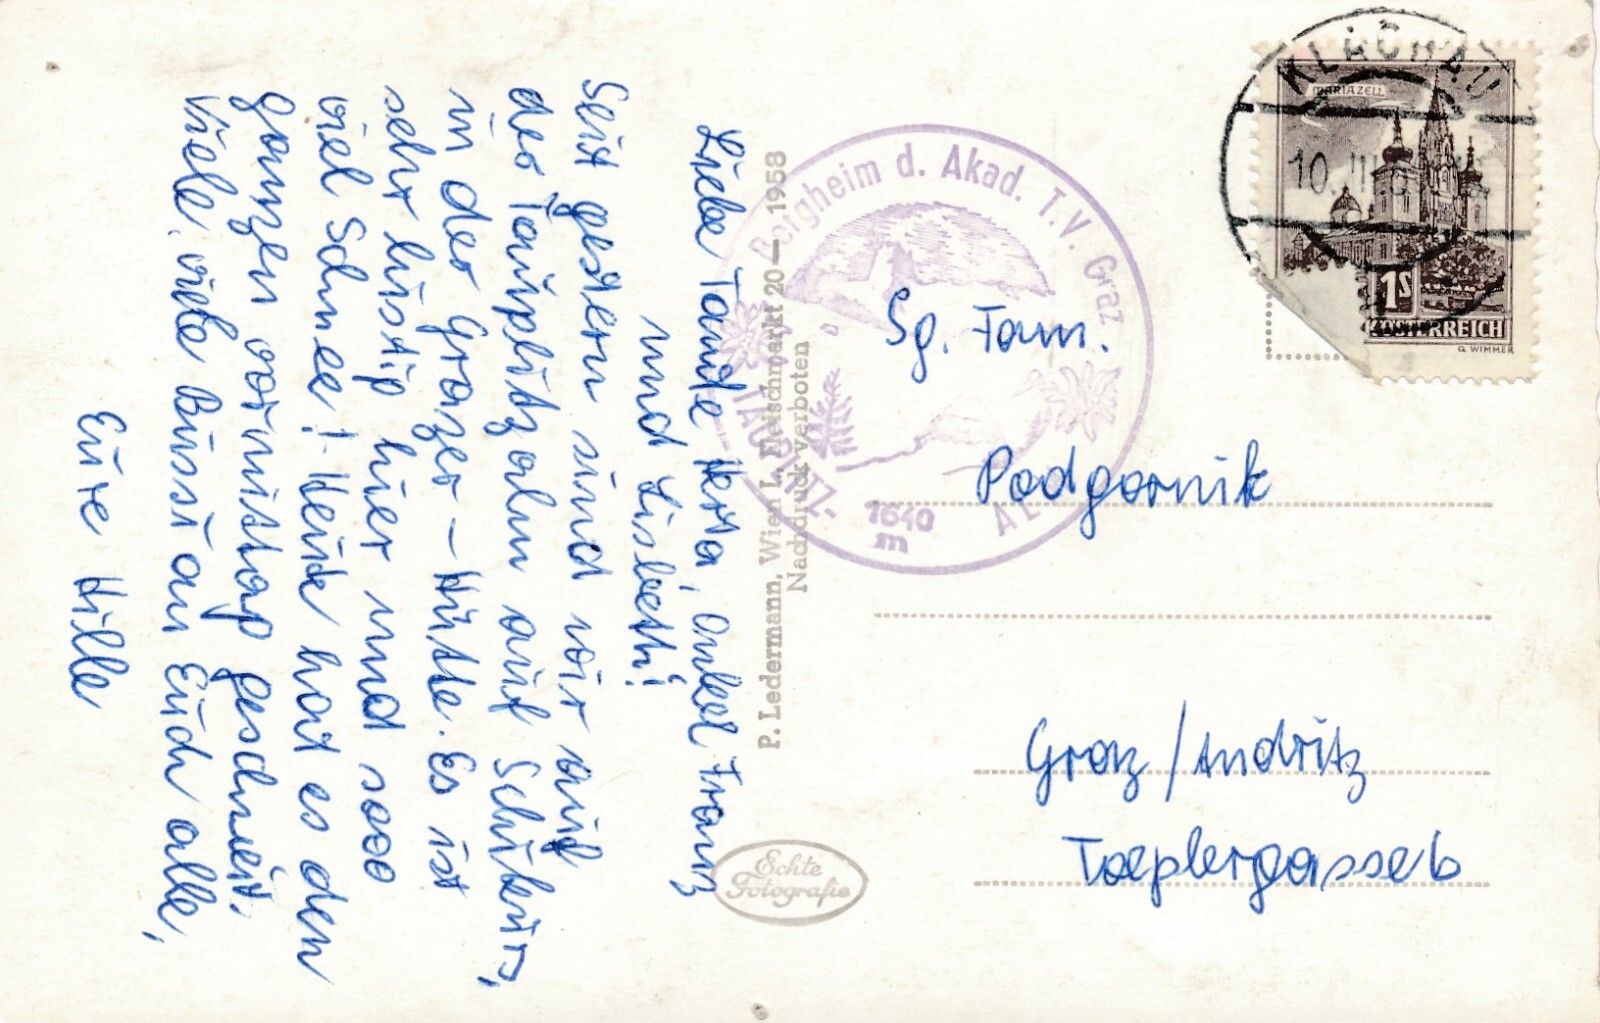 Liebe Tante Herta, Onkel Franz
und Lisbeth!
Seit gestern sind wir auf
der Tauplitzalm auf Schikurs,
in der Grazer-Hütte. Es ist
sehr lustig hier und sooo
viel Schnee! Heute hat es den
ganzen vormittag geschneit.
Viele, viele Bussi an Euch alle,
Eure Hille
P. Ledermann, Wien I., Fleischmarkt 20 — 1958
Nachdruck verboten
Echte
Fotografie
Bergheim d. Akad. T.V. Graz
1640
m
KLACHAU
10. III.
MARIAZELL
1S
ÖSTERREICH
G. WIMMER
Sg. Fam.
Podgornik
Graz/Andritz
Toeplergasse 6